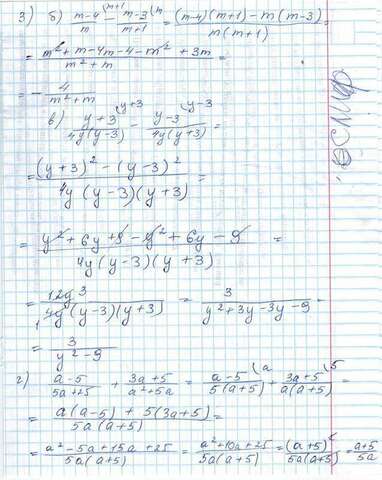 3) б) (m-4)/m ^(m+1 - (m-3)/(m+1) ^(m = ((m-4)(m+1) - m(m-3))/(m(m+1)) =
= (m²+m-4m-4-m²+3m)/(m²+m) =
= - 4/(m²+m)
в) (y+3)/(4y(y-3)) ^(y+3 - (y-3)/(4y(y+3)) ^(y-3 =
= ((y+3)² - (y-3)²)/(4y(y-3)(y+3)) =
= (y²+6y+9-y²+6y-9)/(4y(y-3)(y+3)) =
= 12y 3/(4y(y-3)(y+3)) = 3/(y²+3y-3y-9) =
= 3/(y²-9)
г) (a-5)/(5a+25) + (3a+5)/(a²+5a) = (a-5)/(5(a+5)) ^(a + (3a+5)/(a(a+5)) ^(5 =
= (a(a-5) + 5(3a+5))/(5a(a+5)) =
= (a²-5a+15a+25)/(5a(a+5)) = (a²+10a+25)/(5a(a+5)) = (a+5)²/(5a(a+5)) = (a+5)/5a